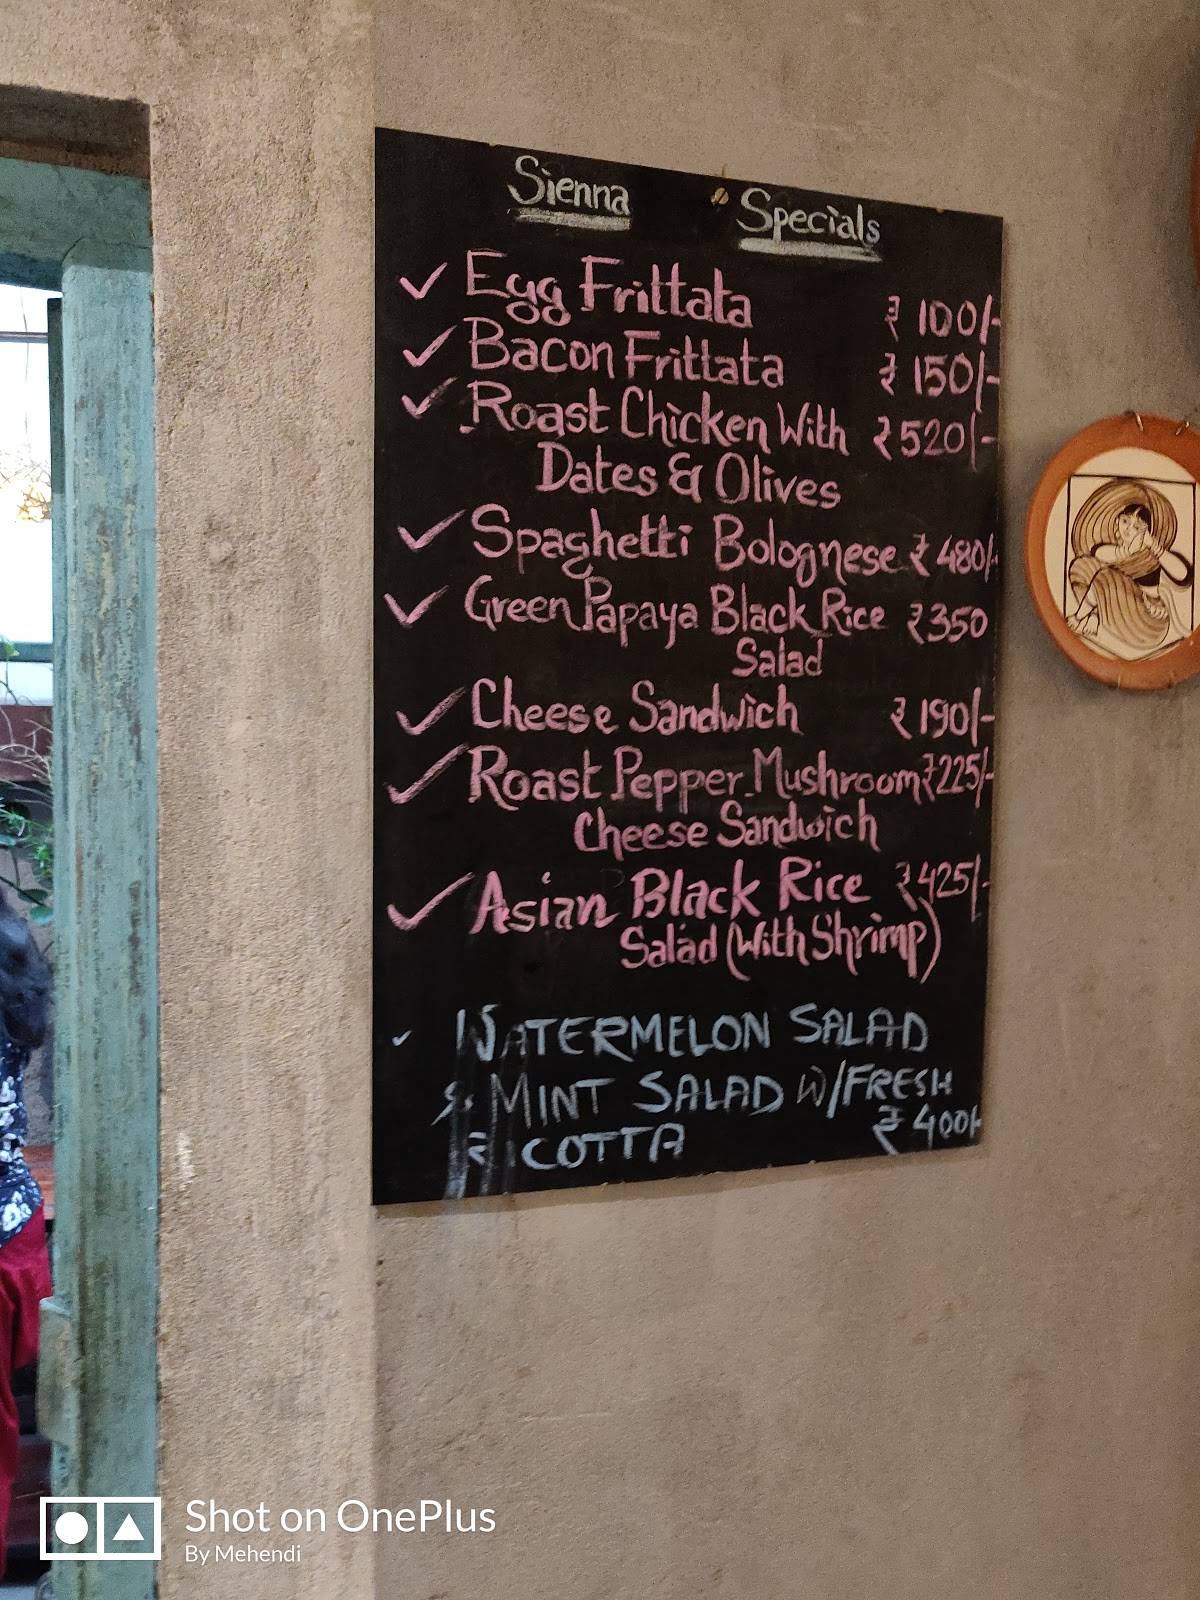 Sienna Specials
Egg Frittata ₹ 100/-
Bacon Frittata ₹ 150/-
Roast Chicken With ₹ 520/-
Dates & Olives
Spaghetti Bolognese ₹ 480/-
Green Papaya Black Rice ₹ 350
Salad
Cheese Sandwich ₹ 190/-
Roast Pepper Mushroom ₹ 225/-
Cheese Sandwich
Asian Black Rice ₹ 425/-
Salad (With Shrimp)
WATERMELON SALAD
& MINT SALAD W/FRESH
RICOTTA ₹ 400/-
Shot on OnePlus
By Mehendi